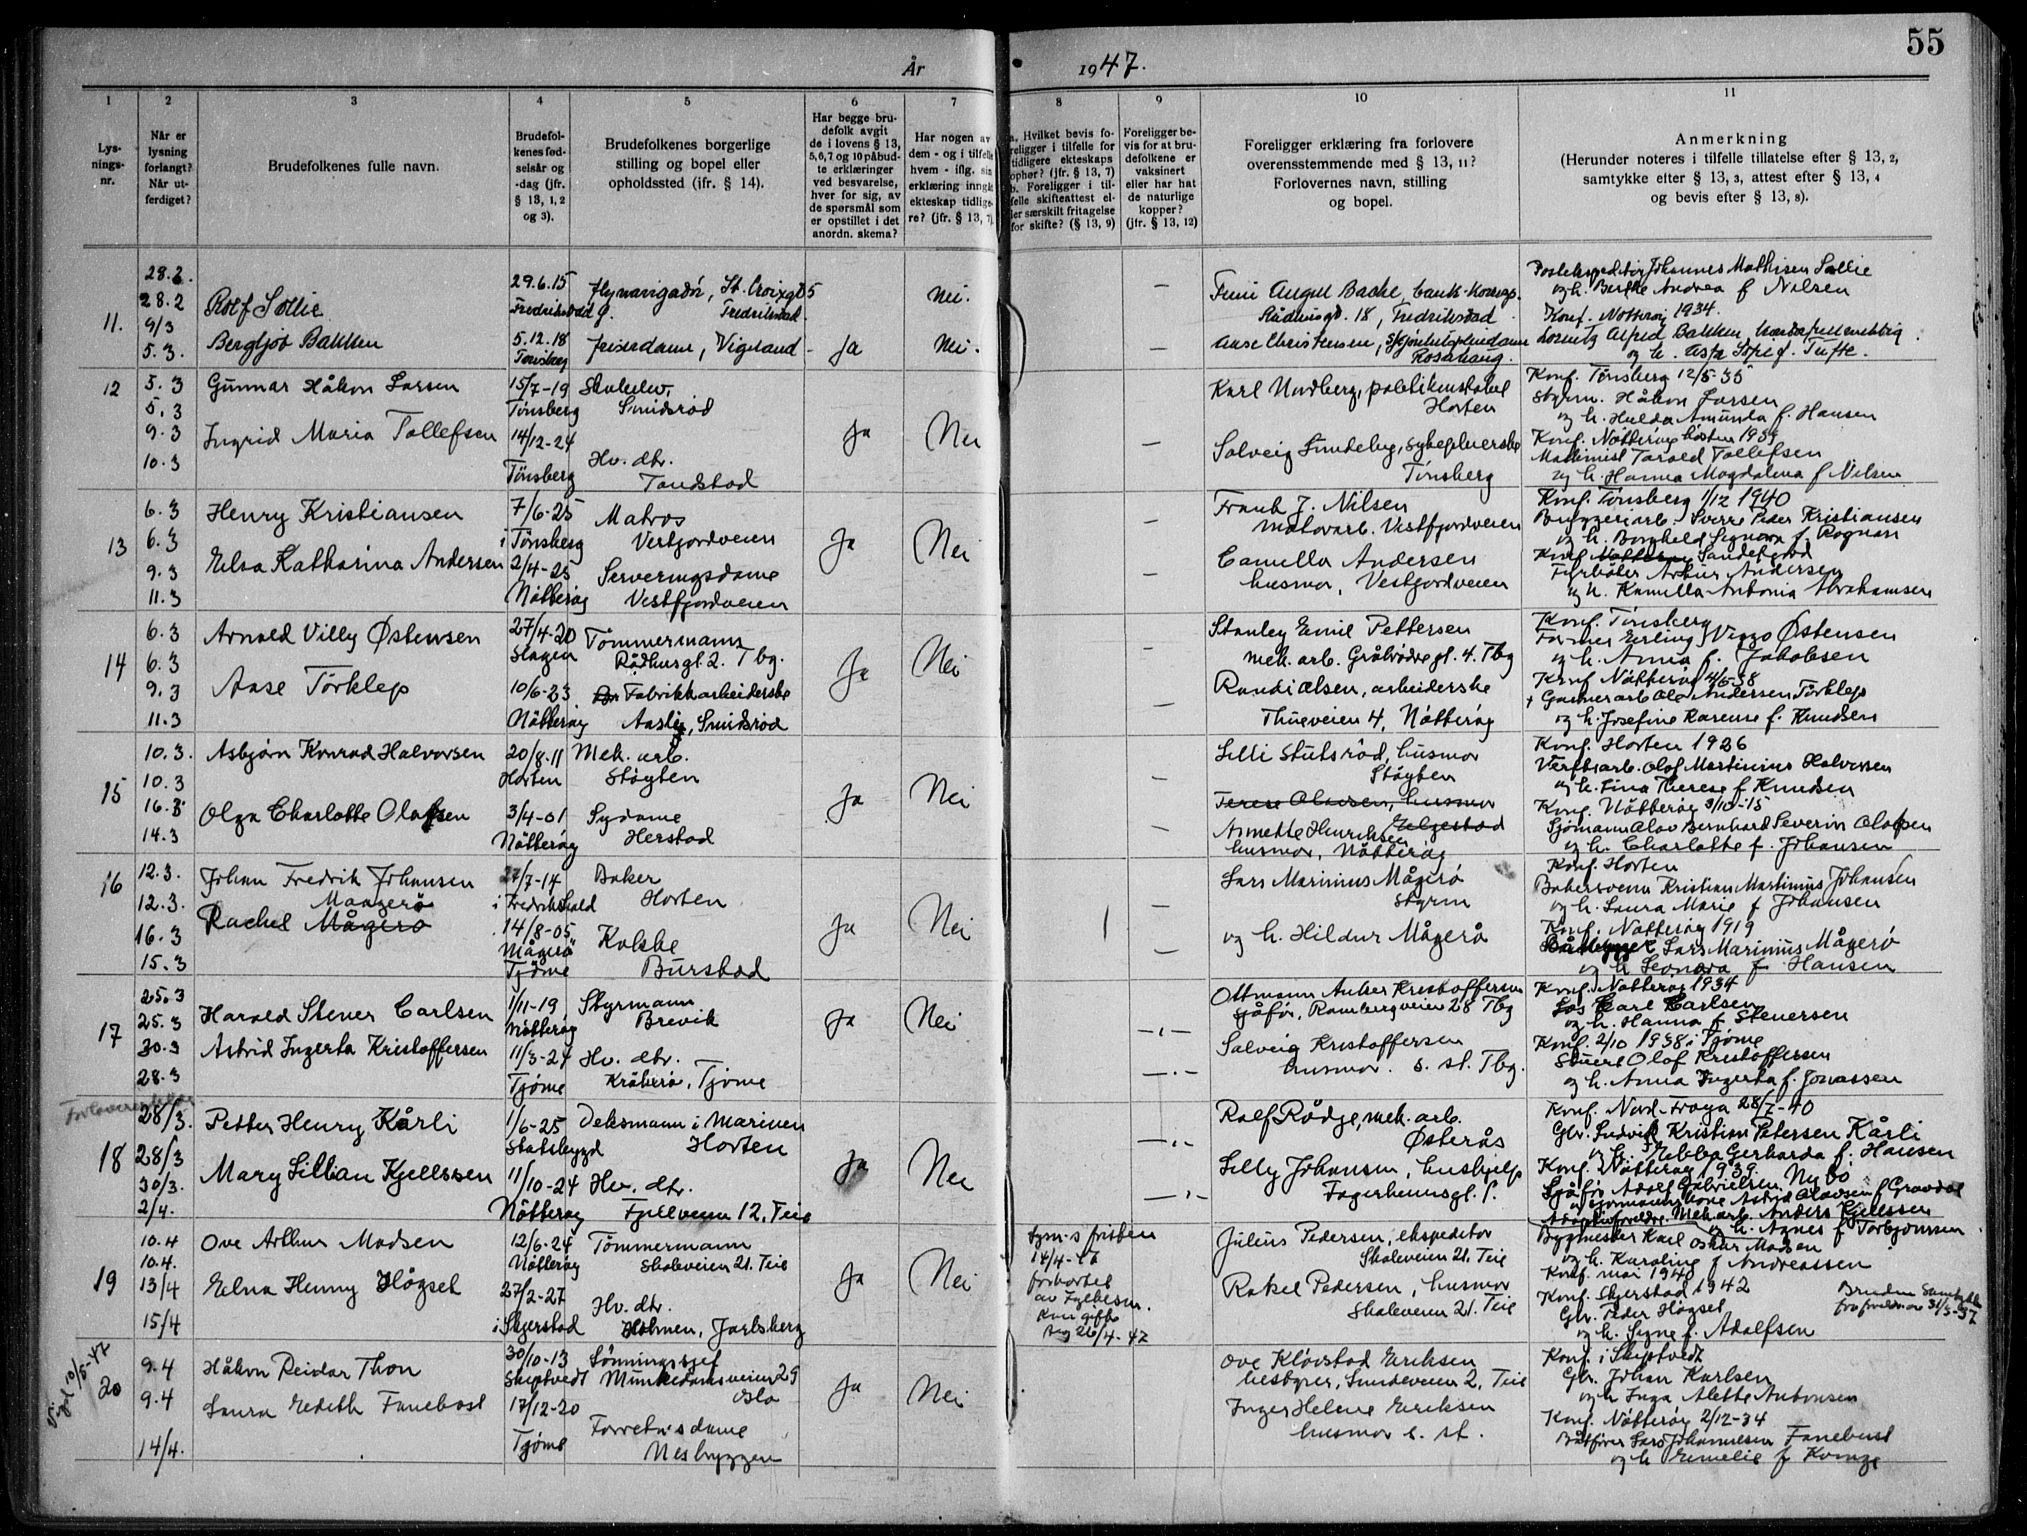 55
År 1947.
1
Lys-
nings-
nr.
2
Når er
lysning
forlangt?
Når ut-
ferdiget?
3
Brudefolkenes fulle navn.
4
Brudefol-
kenes fød-
selsår og
-dag (jfr.
§ 13, 1, 2
og 3).
5
Brudefolkenes borgerlige
stilling og bopel eller
opholdssted (jfr. § 14).
6
Har begge bru-
defolk avgit
de i lovens § 13,
5, 6, 7 og 10 påbud-
te erklæringer
ved besvarelse,
hver for sig, av
de spørsmål som
er opstillet i det
anordn. skema?
7
Har nogen av
dem - og i tilfelle
hvem - iflg. sin
erklæring inngått
ekteskap tidlige-
re? (jfr. § 13, 7).
8
a. Hvilket bevis fo-
religger i tilfelle for
tidligere ekteskaps
ophør? (jfr. § 13, 7)
b. Foreligger i til-
felle skifteattest el-
ler særskilt fritagelse
for skifte? (§ 13, 9)
9
Foreligger be-
vis for at bru-
defolkene er
vaksinert
eller har hat
de naturlige
kopper?
(jfr. § 13, 12)
10
Foreligger erklæring fra forlovere
overensstemmende med § 13, 11?
Forlovernes navn, stilling
og bopel.
11
Anmerkning
(Herunder noteres i tilfelle tillatelse efter § 13, 2,
samtykke efter § 13, 3, attest efter § 13, 4
og bevis efter § 13, 8).
11.
28.2.
28.2
9/3
5.3.
Rolf Sollie
Bergljot Bakken
29.6.15
Fredrikstad
5.12.18
Tønsberg
flynavigatør, St. Croixgt 5
Fredrikstad.
frisørdame, Vigeland
Ja
Nei.
Nei.
August Backe, bank-
18, Fredrikstad
Aase Christensen,
Rosahaug.
Postekspeditør Johannes Mathisen Sollie
og h. Berthe Andrea f Nilsen
Konf. Nøtterøy 1934.
Alfred Bakken
og h. Asta Sofie f. Tufte.
12
5.3
5.3
9.3
10.3
Gunnar Håkon Larsen
Ingrid Maria Tollefsen
15/7-19
Tønsberg
14/12-24
Tønsberg
Skoelev,
Smidsrød
Hv. dtr.
Tandstad
Ja
Nei
Karl Nordberg, politikonstabel
Horten
Solveig Lundeby, sykepleierske
Tønsberg
Konf. Tønsberg 12/5-35
Styrm. Håkon Larsen
og h. Hulda Amunda f. Hansen
Konf. Nøtterøy høsten 1939
Maskinist Tarald Tollefsen
og h. Hanna Magdalena f Nilsen
13
6.3
6.3
9.3
11.3
Henry Kristiansen
Elsa Katharina Andersen
7/6-25
i Tønsberg
2/4-25
Nøtterøy
Matros
Vestfjordveien
Serveringsdame
Vestfjordveien
Ja
Nei
Frank J. Nilsen
motorarb. Vestfjordveien
Camilla Andersen
husmor, Vestfjordveien
Konf. Tønsberg 1/12 1940
Bryggeriarb. Sverre Peder Kristiansen
og h. Borghild Signora f. Rognan
Konf. Nøtterøy Sandefjord
Fyrbøter Arthur Andersen
og h. Kamilla Antonia Abrahamsen
14
6.3
6.3
9.3
11.3
Arnold Villy Østensen
Aase Torklep
27/4-20
Slagen
10/6-23
Nøtterøy
Tømmermann
Rådhusgt 2. Tbg.
Fabrikkarbeiderske
Aasly, Smidsrød
Ja
Nei
Stanley Emil Pettersen
mek. arb. Gråbrødregt. 4. Tbg
Randi Olsen, arbeiderske
Thueveien 4, Nøtterøy
Konf. Tønsberg
Former Erling Viggo Østensen
og h. Anna f. Jakobsen
Konf Nøtterøy 4/6-38
+ Gartnerarb Ola Andersen Torklep
og h. Josefine Karense f. Knudsen
15
10.3.
10.3
16.3
14.3
Asbjørn Konrad Halvorsen
Olga Charlotte Olafsen
20/8.11
Horten
3/4-01
Nøtterøy
Mek. arb.
Støyten
Sydame
Herstad
Ja
Nei
Lilli Stutsrød, husmor
Støyten
Terese Olausen, husmor
Elgestad
Annette Henriksen
husmor, Nøtterøy
Konf. Horten 1926
Verftsarb. Olof Martinius Halvorsen
og h. Lina Therese f Knudsen
Konf. Nøtterøy 3/10-15
Sjømann Olav Bernhard Severin Olafsen
og h. Charlotte f. Johansen
16
12.3.
12.3.
16.3
15.3
Johan Fredrik Johansen
Maagerø
Rachel Mågerø
27/7-14
i Fredrikshald
14/8-05
Mågerø
Tjøme
Baker
Horten
Kokke
Burstad
Ja
Nei
Lars Marinius Mågerø
Styrm
og h. Hildur Mågerø
Konf. Horten
Bakersvenn Kristian Martinius Johansen
og h. Laura Marie f Johansen
Konf. Nøtterøy 1919
Lars Marinius Mågerø
og h Leonora f Hansen
17
25.3
25.3
30.3
28.3
Harald Stener Carlsen
Astrid Ingerta Kristoffersen
1/11-19
Nøtterøy
11/3-24
Tjøme
Styrmann
Brevik
Hv. dtr.
Kråkerø, Tjøme
Ja
Nei
Ottmann Anker Kristoffersen
sjåfør, Rambergveien 28 Tbg
Solveig Kristoffersen
husmor. s. st. Tbg.
Konf. Nøtterøy 1934
Los Carl Carlsen
og h. Hanna f Stenersen
Konf. 2/10 1938 i Tjøme
Stuert Olof Kristoffersen
og h. Anna Ingerta f. Jonassen
18
28/3.
28/3
30/3.
2/4.
Petter Henry Kårli
Mary Lillian Kjellssen
1/6-25
Stadsbygd
11/10-24
Nøtterøy
Deksmann i Marinen
Horten
Hv. dtr.
Fjellveien 12, Teie
Ja
Nei
Rolf Rådge, mek. arb.
Østerås
Lilly Johansen, hushjelp
Fagerheimsgt.
Konf. Nord-Frøya 28/7-40
Gbr. Ludvik Kristian Petersen Kårli
og h. Ebba Gerharda f. Hansen
Konf. Nøtterøy 1939.
Sjåfør Adolf Gabrielsen Nybø
Astrid Olavsen f Gravdal
Adoptivforeldre. Mek arb. Anders Kjellssen
og h. Agnes f Torbjørnsen
19
10.4
10.4.
13/4
15/4
Ove Arthur Madsen
Edna Henny Høgset
12/6-24
Nøtterøy
27/2-27
i Skjerstad
Tømmermann
Skoleveien 21. Teie
Hv. dtr.
Holmen, Jarlsberg
Ja
Nei
fristen
14/4-47
forkortet
av Fylkesm.
Kun gifte
seg 26/4-47
Julius Pedersen, ekspeditør
Skoleveien 21. Teie
Rakel Pedersen, husmor
Skoleveien 21. Teie
Bygmester Karl Oskar Madsen
og h. Karoline f Andreassen
Konf. mai 1940
Konf. Skjerstad 1942
Gbr. Peder Høgset
og h. Signe f. Adolfsen
Bruden Samtykke
fra foreldrene 31/3-47
20
Vigd 10/5-47
9.4
9.4
14/4.
Håkon Reidar Thon
Laura Edith Fanebust
30/10-13
Skiptvedt
17/12-20
Tjøme
Lønningssjef
Munkedamsveien 29
Oslo
Forretn.sdame
Nesbryggen
Ja
Nei
Ove Kløvstad Eriksen
bestyrer, Lundeveien 2, Teie
Inger Helene Eriksen
husmor s. st.
Konf. i Skiptvedt
Gbr. Johan Karlsen
og h Inga Alette Antonsen
Konf. Nøtterøy 2/12-34
Båtfører Lars Johannesen Fanebust
og h Emelie f